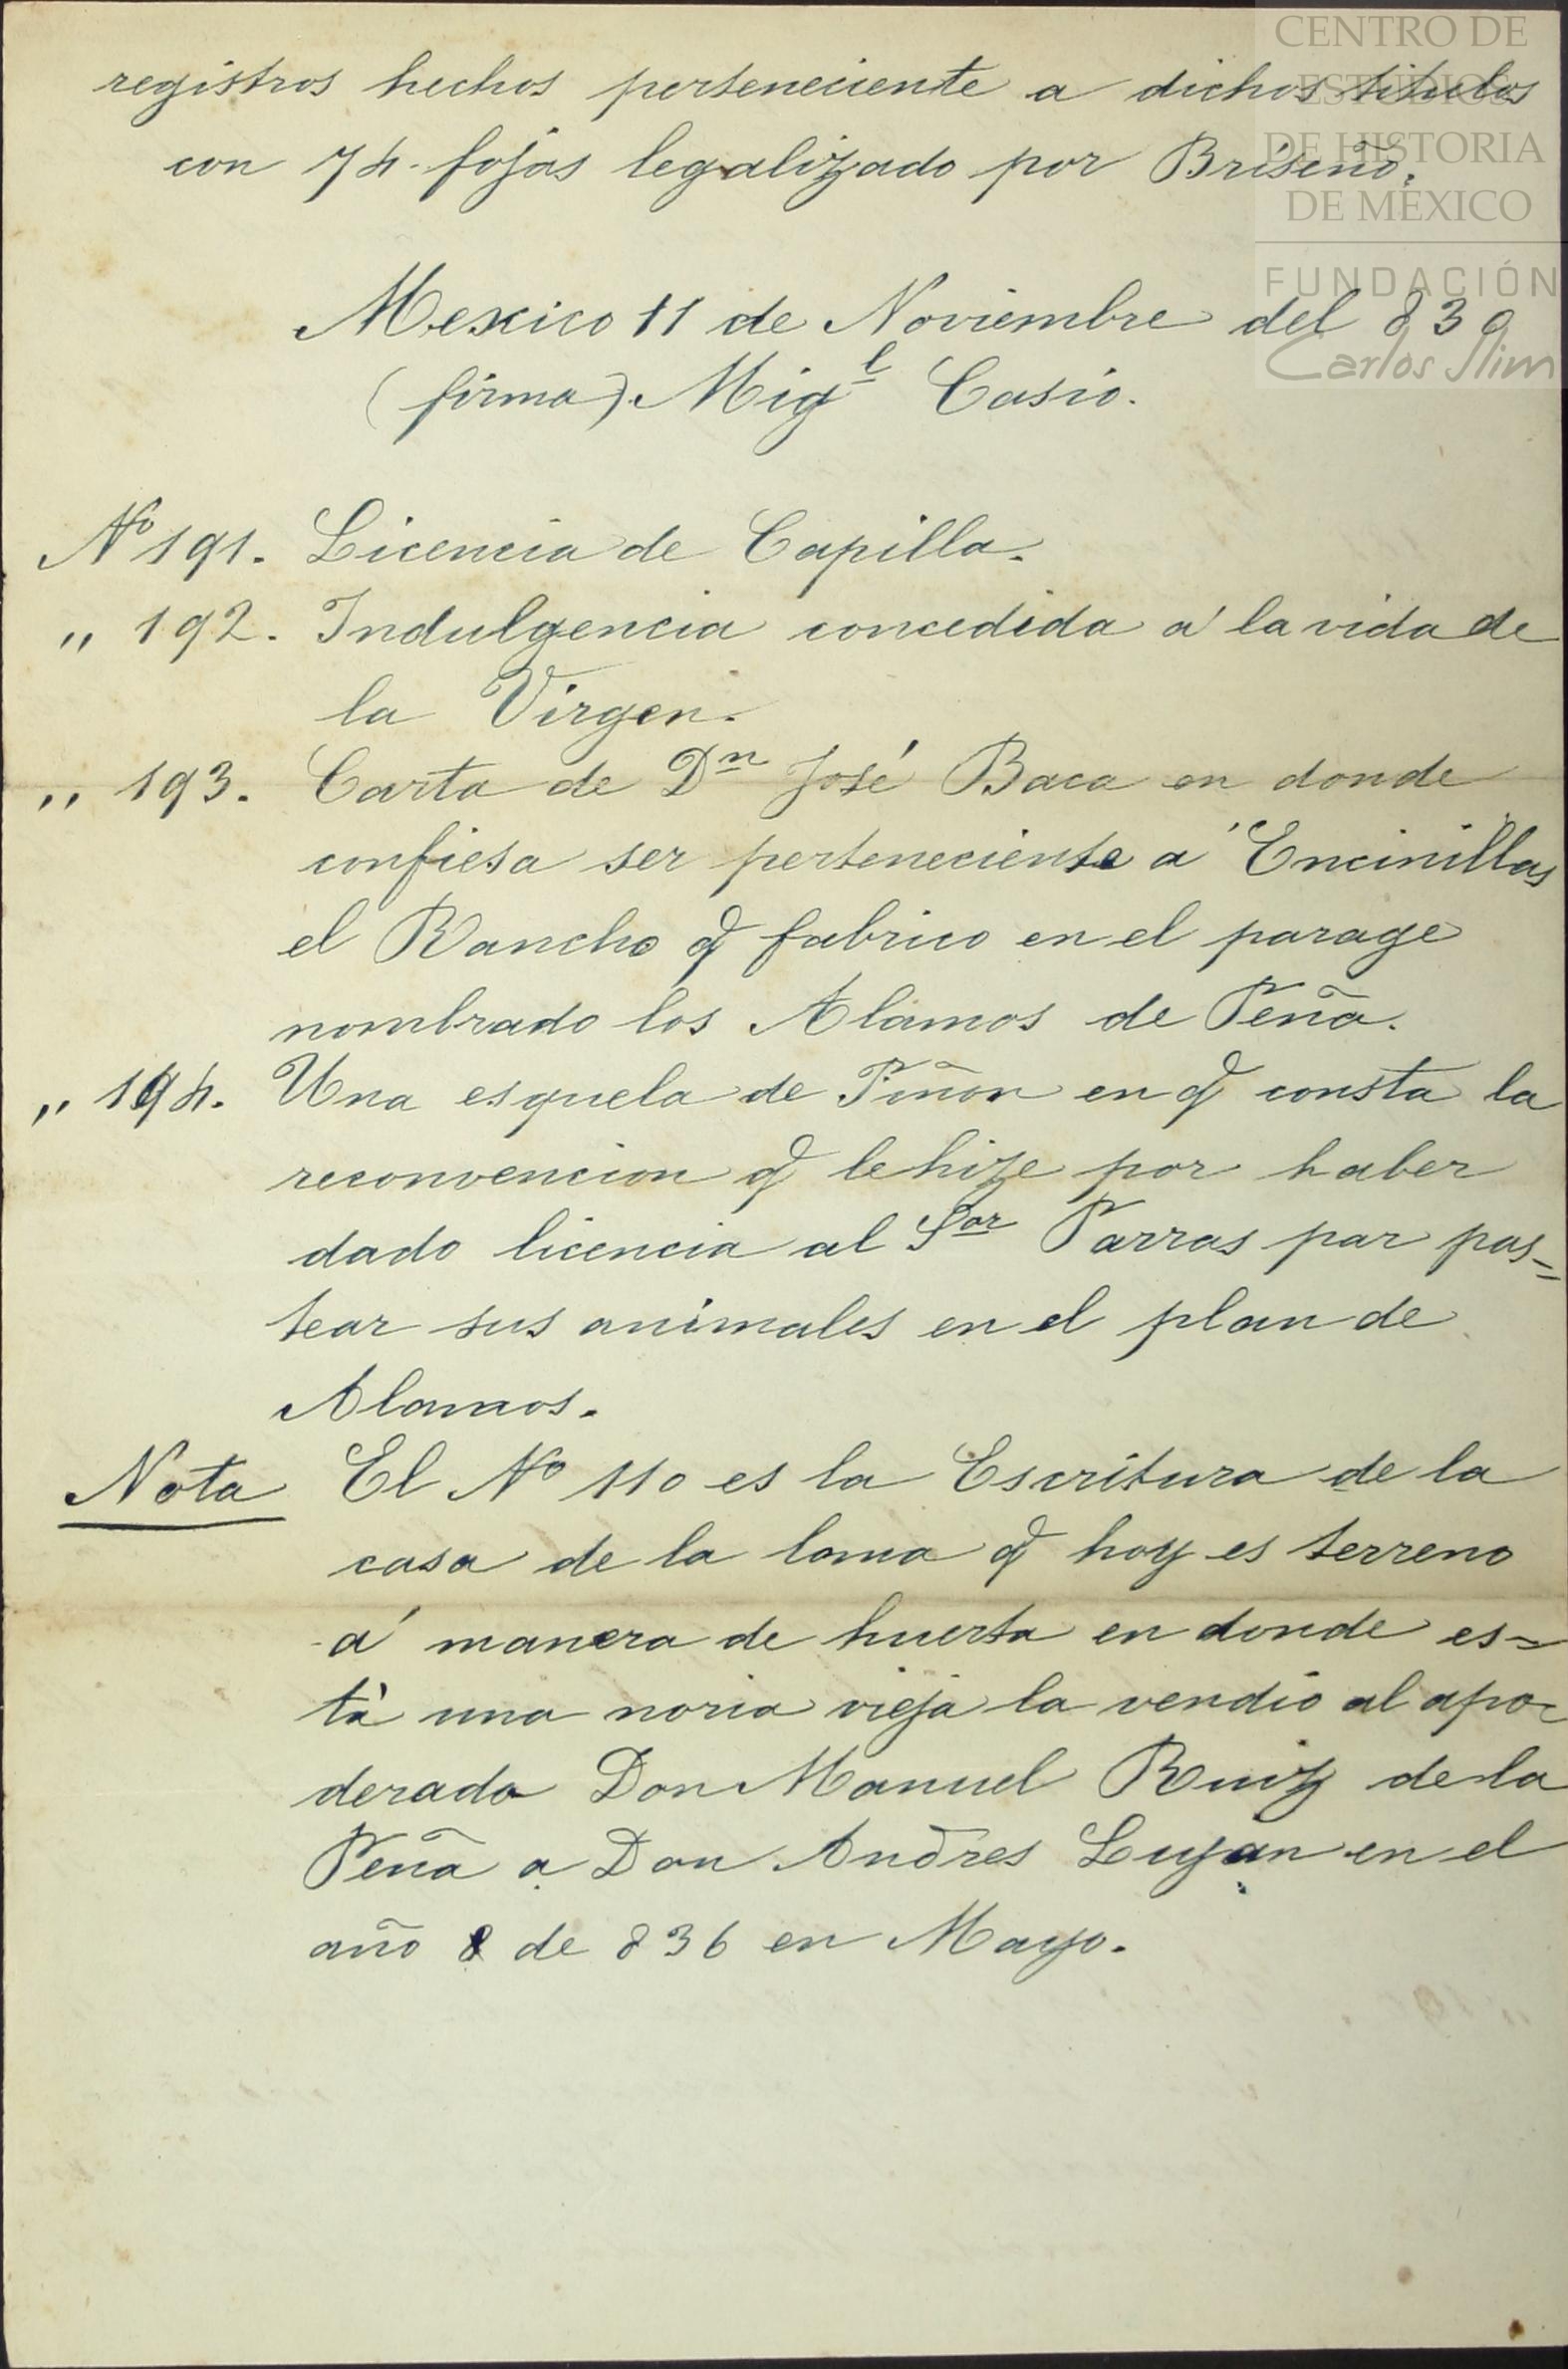 registros hechos perteneciente a dichos titulos
con 74. fojas legalizado por Briseño.
Mexico 11 de Noviembre del 830
(firma). Mig^l Casio.
Nº 191. Licencia de Capilla.
,, 192. Indulgencia concedida á la vida de
la Virgen.
,, 193. Carta de D^n José Baca en donde
confiesa ser perteneciente á Encinillas
el Rancho q̃ fabrico en el parage
nombrado los Alamos de Peña.
,, 194. Una esquela de Piñon en q̃ consta la
reconvencion q̃ le hize por haber
dado licencia al S^or Parras par pas=
tear sus animales en el plan de
Alamos.
Nota El Nº 110 es la Escritura de la
casa de la loma q̃ hoy es terreno
á manera de huerta en donde es=
tà una noria vieja la vendio al apo-
derado Don Manuel Ruiz de la
Peña a Don Andres Lujan en el
año 8 de 836 en Mayo.
CENTRO DE
ESTUDIOS
DE HISTORIA
DE MÉXICO
FUNDACIÓN
Carlos Slim